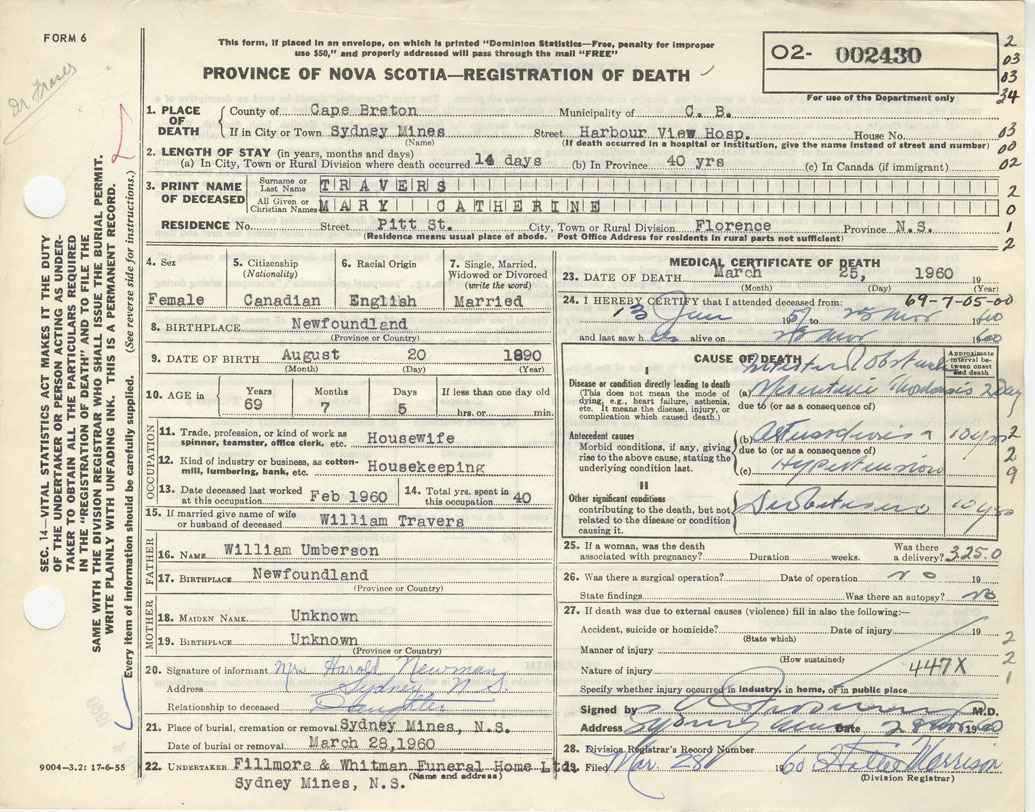 FORM 6
This form, if placed in an envelope, on which is printed "Dominion Statistics—Free, penalty for improper
use $50," and properly addressed will pass through the mail "FREE"
O2- 002430
For use of the Department only
PROVINCE OF NOVA SCOTIA—REGISTRATION OF DEATH
Dr Fraser
2
03
03
34
03
00
02
2
0
1
2
1. PLACE OF DEATH
County of Cape Breton Municipality of C. B.
If in City or Town Sydney Mines Street Harbour View Hosp. House No.
(Name) (If death occurred in a hospital or institution, give the name instead of street and number)
2. LENGTH OF STAY (in years, months and days)
(a) In City, Town or Rural Division where death occurred 14 days (b) In Province 40 yrs (c) In Canada (if immigrant)
3. PRINT NAME OF DECEASED
Surname or Last Name TRAVERS
All Given or Christian Names MARY CATHERINE
RESIDENCE No. Street Pitt St. City, Town or Rural Division Florence Province N.S.
(Residence means usual place of abode. Post Office Address for residents in rural parts not sufficient)
SEC. 14—VITAL STATISTICS ACT MAKES IT THE DUTY
OF THE UNDERTAKER OR PERSON ACTING AS UNDER-
TAKER TO OBTAIN ALL THE PARTICULARS REQUIRED
IN THE "REGISTRATION OF DEATH" AND FILE THE
SAME WITH THE DIVISION REGISTRAR WHO SHALL ISSUE THE BURIAL PERMIT.
WRITE PLAINLY WITH UNFADING INK. THIS IS A PERMANENT RECORD.
Every item of information should be carefully supplied. (See reverse side for instructions.)
4. Sex
Female
5. Citizenship
(Nationality)
Canadian
6. Racial Origin
English
7. Single, Married,
Widowed or Divorced
(write the word)
Married
8. BIRTHPLACE Newfoundland
(Province or Country)
9. DATE OF BIRTH August 20 1890
(Month) (Day) (Year)
10. AGE in
Years Months Days If less than one day
69 7 5 hrs. or min.
OCCUPATION
11. Trade, profession, or kind of work as
spinner, teamster, office clerk, etc. Housewife
12. Kind of industry or business, as cotton-
mill, lumbering, bank, etc. Housekeeping
13. Date deceased last worked
at this occupation Feb 1960
14. Total yrs. spent in
this occupation 40
15. If married give name of wife
or husband of deceased William Travers
FATHER
16. NAME William Umberson
17. BIRTHPLACE Newfoundland
(Province or Country)
MOTHER
18. MAIDEN NAME Unknown
19. BIRTHPLACE Unknown
(Province or Country)
20. Signature of informant Mrs Harold Newman
Address Sydney N S.
Relationship to deceased Daughter
21. Place of burial, cremation or removal Sydney Mines, N.S.
Date of burial or removal March 28,1960
22. UNDERTAKER Fillmore & Whitman Funeral Home Ltd.
(Name and address)
Sydney Mines, N.S.
9004—3.2: 17-6-55
MEDICAL CERTIFICATE OF DEATH
23. DATE OF DEATH March 25, 1960 19
(Month) (Day) (Year)
24. I HEREBY CERTIFY that I attended deceased from: 69-7-05-00
13 Jan 19 to 25 Mar 1960
and last saw h alive on 25 Mar 1960
CAUSE OF DEATH
Approximate
interval be-
tween onset
and death
I
Disease or condition directly leading to death
(This does not mean the mode of
dying, e.g., heart failure, asthenia,
etc. It means the disease, injury, or
complication which caused death.)
(a) 2 Day
due to (or as a consequence of)
Antecedent causes
Morbid conditions, if any, giving
rise to the above cause, stating the
underlying condition last.
(b) 10 yrs
due to (or as a consequence of)
(c) Hypertension
2
2
9
II
Other significant conditions
contributing to the death, but not
related to the disease or condition
causing it.
10 yrs
25. If a woman, was the death
associated with pregnancy? Duration weeks. Was there
a delivery? 325.0
26. Was there a surgical operation? Date of operation no 19
State findings Was there an autopsy? no
27. If death was due to external causes (violence) fill in also the following:—
Accident, suicide or homicide? Date of injury 19
(State which)
Manner of injury
(How sustained)
Nature of injury 447X
Specify whether injury occurred in industry, in home, or in public place
2
2
1
Signed by M.D.
Address Sydney Mines Date 28 Mar 1960
28. Division Registrar's Record Number
29. Filed Mar. 28 1960 Hattie Morrison
(Division Registrar)